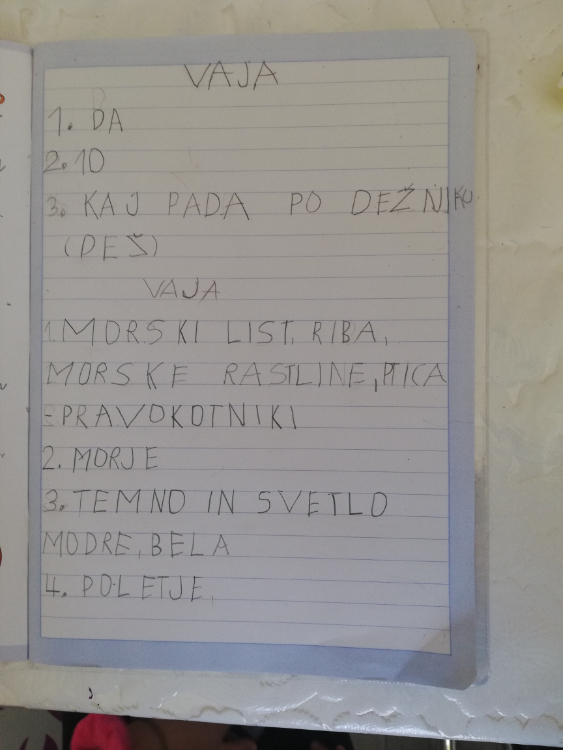 VAJA
1. DA
2. 10
3. KAJ PADA PO DEŽNIKU
(DEŽ)
VAJA
1. MORSKI LIST, RIBA,
MORSKE RASTLINE, PTICA
- PRAVOKOTNIKI
2. MORJE
3. TEMNO IN SVETLO
MODRE, BELA
4. POLETJE,